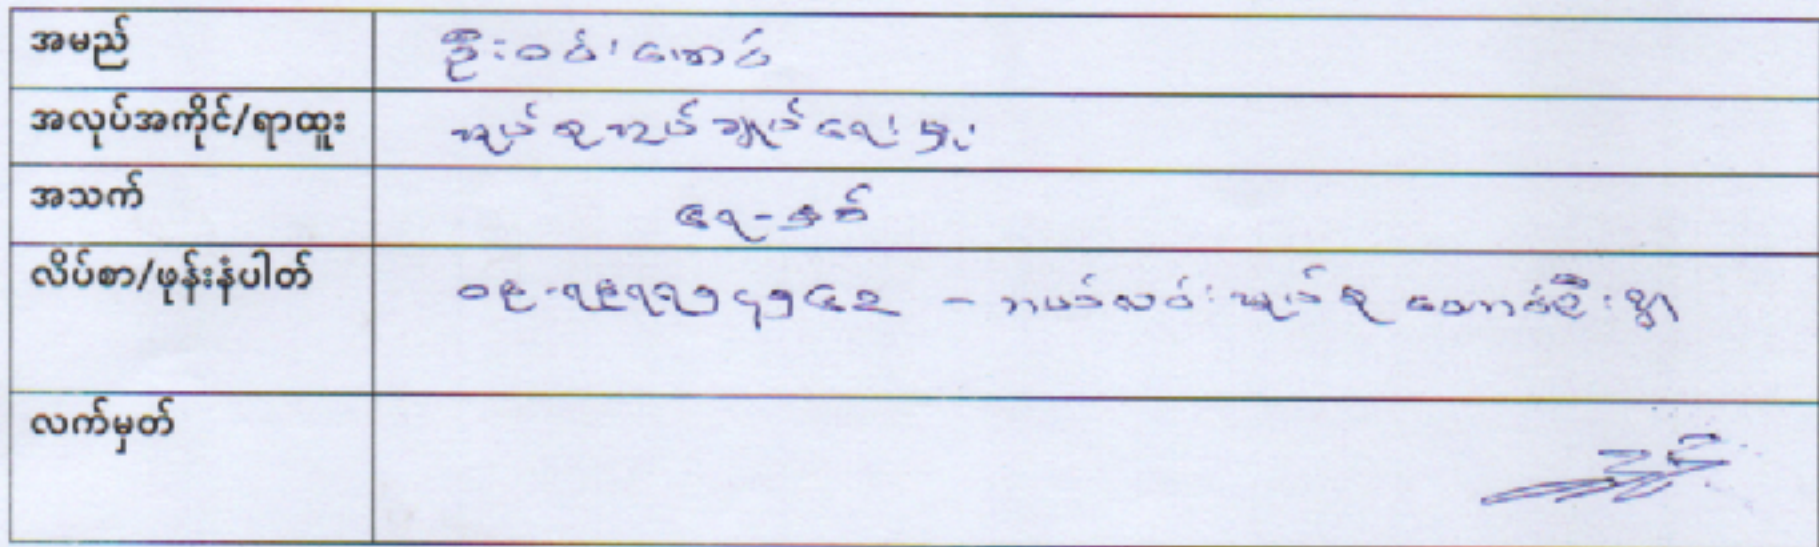 အမည် ဦးဝင်းအောင်
အလုပ်အကိုင်/ရာထူး အုပ်စုအုပ်ချုပ်ရေးမှူး
အသက် ၄၇-နှစ်
လိပ်စာ/ဖုန်းနံပါတ် ၀၉-၇၉၇၇၅၄၅၆၃ - ကယ်လင်းအုပ်စု တောင်ဦးရွာ
လက်မှတ်